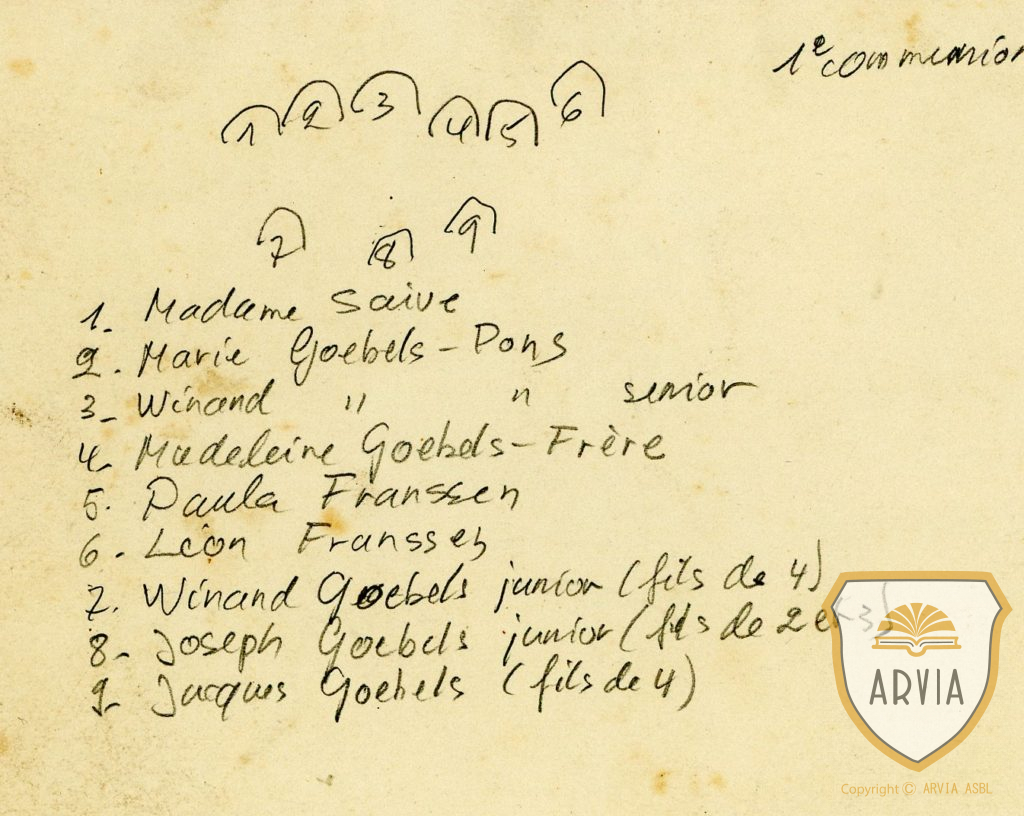 1e communion
1 2 3 4 5 6
7 8 9
1. Madame Saive
2. Marie Goebels - Pons
3 - Winand " " senior
4. Madeleine Goebels - Frère
5. Paula Franssen
6. Léon Franssen
7. Winand Goebels junior (fils de 4)
8 - Joseph Goebels junior (fils de 2 et 3)
9 - Jacques Goebels (fils de 4)
ARVIA
Copyright © ARVIA ASBL